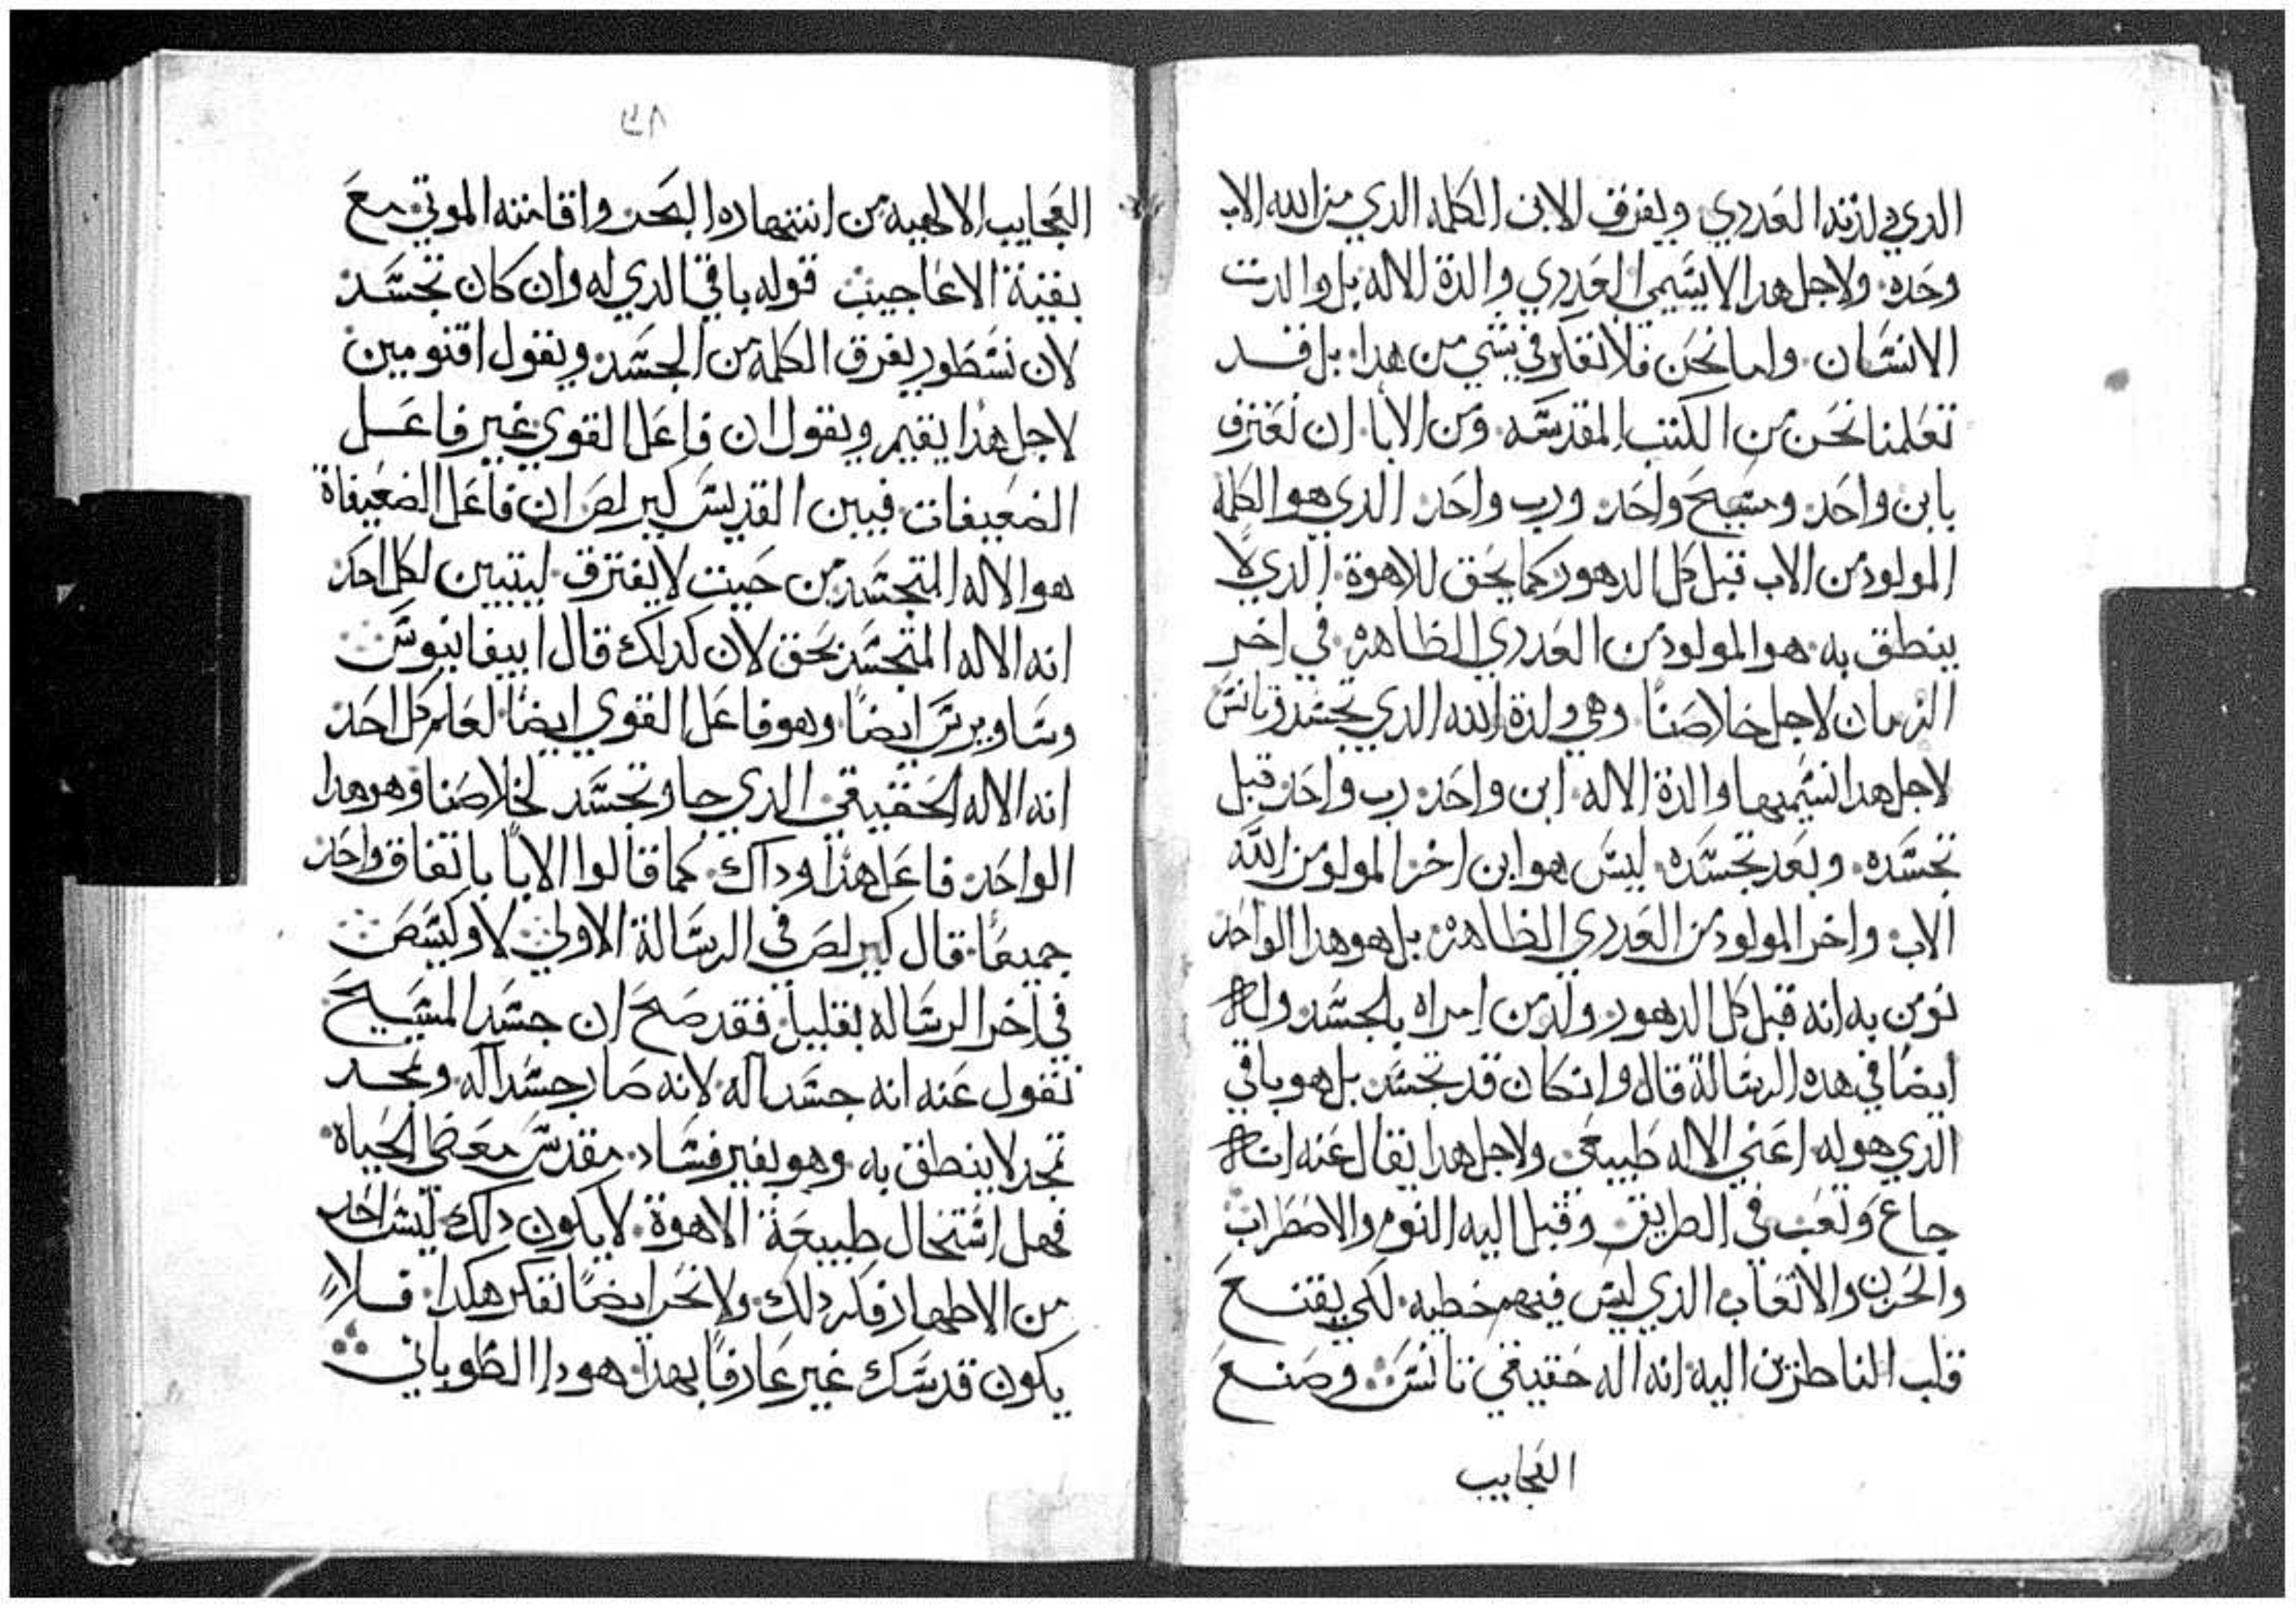 الدي ولدته العدري ويفرق الابن الكلمه الدي من الله الاب
وحده ولاجل هدا لا يسمي العدري والدة الاله بل والدت
الانسان واما نحن فلا نفكر في شي من هدا بل قد
تعلمنا نحن من الكتب المقدسه ومن الابا ان نعترف
بابن واحد ومسيح واحد ورب واحد الدي هو الكلمة
المولود من الاب قبل كل الدهور كما يحق للاهوة الدي لا
ينطق به هو المولود من العدري الطاهرة في اخر
الزمان لاجل خلاصنا وهي ولدة الله الدي تجسد وتانس
لاجل هدا نسميها والدة الاله ابن واحد رب واحد قبل
تجسده وبعد تجسده ليس هو ابن اخر المولود من الله
الاب واخر المولود من العدري الطاهرة بل هو هدا الواحد
نومن به انه قبل كل الدهور ولد من امراه بالجسد
ايضا في هده الرسالة قال وان كان قد تجسد بل هو باقي
الدي هو له اعني الاله طبيعي ولاجل هدا يقال عنه انه
جاع وتعب في الطريق وقبل اليه النوم والاضطراب
والحزن والاتعاب الدي ليس فيهم خطيه لكي يقنع
قلب الناظرين اليه انه اله حقيقي تانس وصنع
العجايب
العجايب الالهيه من انتهاره البحر واقامته الموتي مع
بقية الاعاجيب قوله باقي الدي له وان كان تجسد
لان نسطور يفرق الكلمة من الجسد ويقول اقنومين
لاجل هدا يقيم ويقول ان فاعل القوي غير فاعل
الضعيفات فبين القديس كيرلص ان فاعل الضعيفاة
هو الاله المتجسد من حيت لا يفترق ليتبين لكل احد
انه الاله المتجسد بحق لان كدلك قال ابيفانيوس
وساويرس ايضا وهو فاعل القوي ايضا لعلم كل احد
انه الاله الحقيقي الدي جا وتجسد لخلاصنا وهو هدا
الواحد فاعل هدا وداك كما قالوا الابا باتفاق واحد
جميعا قال كيرلص في الرسالة الاولي لاوكيسص
في اخر الرساله بقليل فقد صح ان جسد المسيح
نقول عنه انه جسد اله لانه صار جسد اله ومجد
تمجد لا ينطق به وهو بغير فساد مقدس معطي الحياة
فهل استحال طبيعة الاهوة لا يكون دلك ليس احد
من الاطهار فكر دلك ولا نحن ايضا نفكر هكدا فلا
يكون قدسك غير عارفا بهدا هودا الطوباني